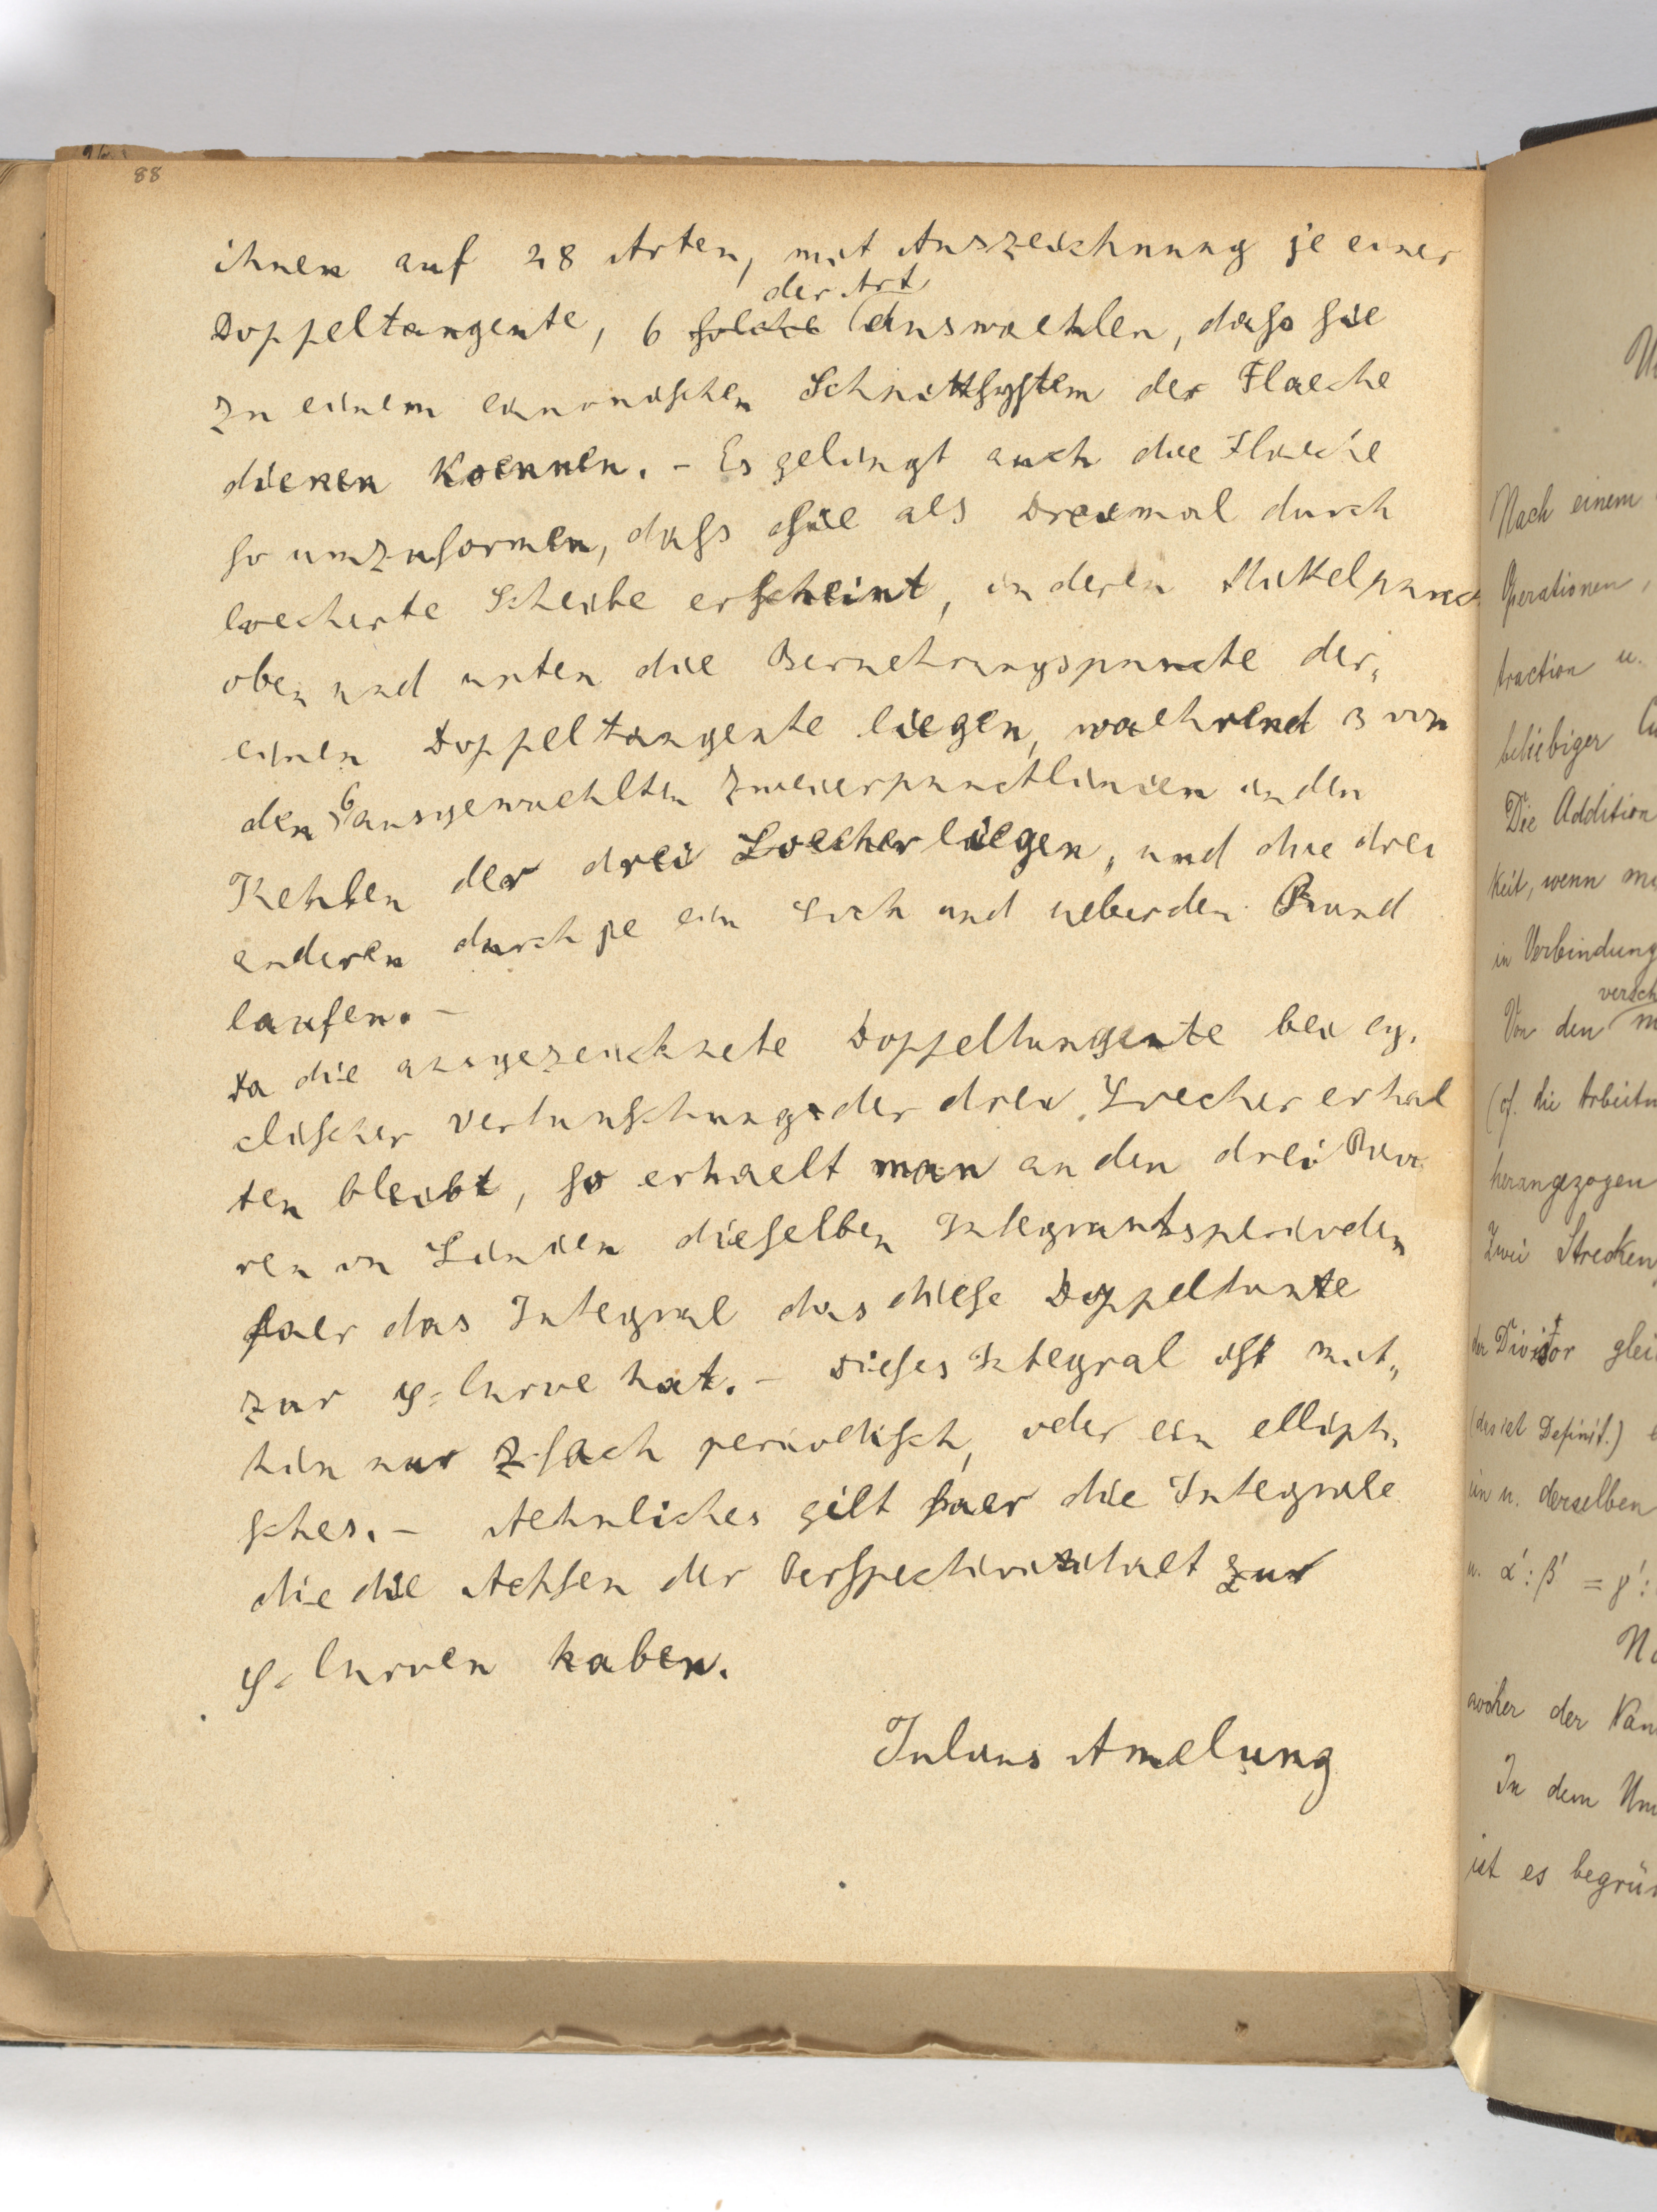 88
ihnen auf 28 Arten, mit Auszeichnung je einer
der Art
Doppeltangente, 6 solche auswaehlen, dass sie
zu einem canonischen Schnittsystem der Flaeche
dienen koennen. – Es gelingt auch die Flaeche
so umzuformen, dass sie als Dreimal durch
loecherte Scheibe erscheint, in deren Mittelpunct
oben und unten die Beruehrungspuncte der„
einen Doppeltangente liegen, waehrend 3 von
den 6 ausgewaehlten Zweierpunctlinien in den
Kehlen der drei Loecher liegen, und die drei
anderen durch je ein Loch und ueber den Rand
laufen. –
Da die ausgezeichnete Doppeltangente bei cy,
clischer Vertauschung der drei Loecher erhal
ten bleibt, so erhaelt man an den drei Paa
ren von Linien dieselben Integrantsperioden
fuer das Integral das diese Doppeltante
zur φ-Curve hat. – Dieses Integral ist mit„
hin nur 2-fach periodisch, oder ein ellipti,
sches. – Aehnliches gilt fuer die Integrale
die die Achsen der Perspectivitaet zur
φ-Curven haben.
Julius Amelung
Nach einem
Operationen,
traction u.
beliebiger
Die Addition
keit, wenn
in Verbindung
versch
Von den
(cf. die Arbeiten
herangezogen
Zwei Strecken
der Divisor
(das ist Definit.)
ein u. derselben
u. α′:β′ = γ′:
woher der
In dem
ist es